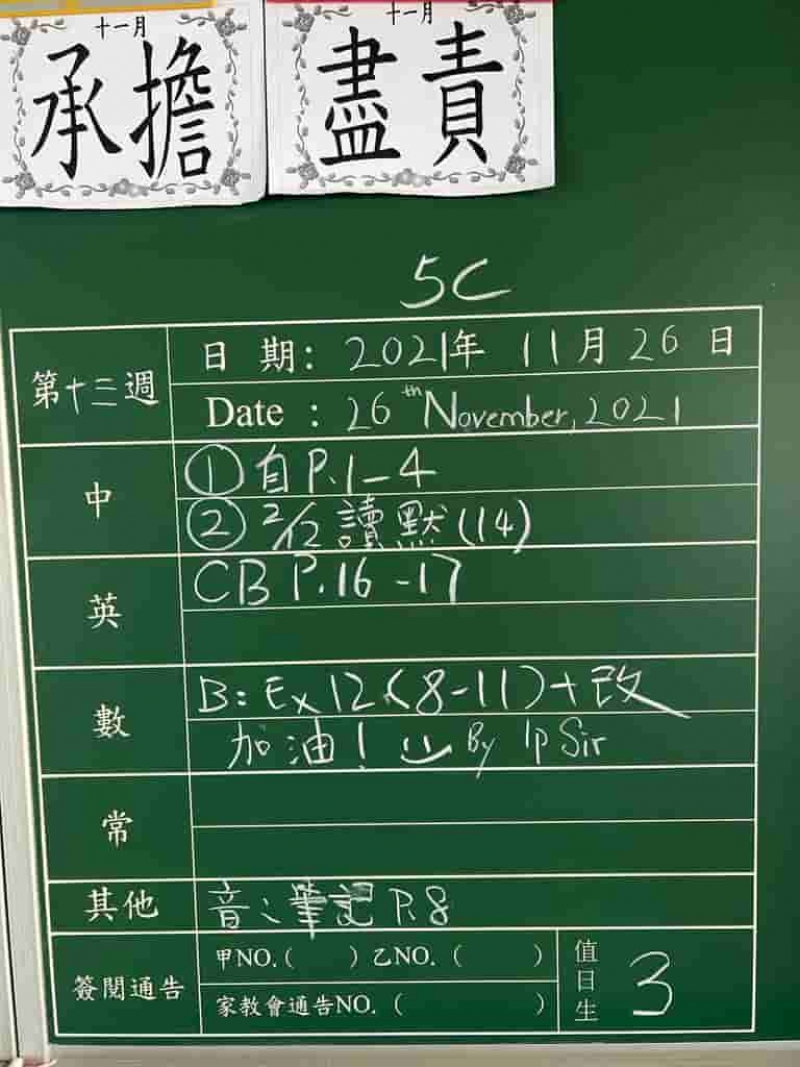 十一月
承擔
十一月
盡責
5C
第十三週
日期：2021年 11月 26日
Date : 26th November, 2021
中
① 自 P.1-4
② 2/12 讀默 (14)
英
CB P.16-17
數
B: Ex 12 (8-11) + 改
加油！ By Ip Sir
常
其他
音：筆記 P.8
簽閱通告
甲NO.（ ）乙NO.（ ）
家教會通告NO.（ ）
值日生
3